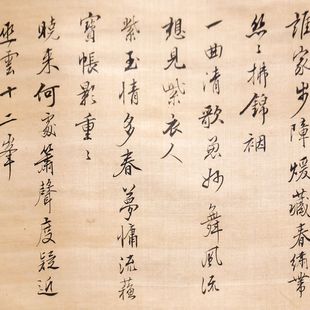 誰家步障煖藏春繡帶
絲〻拂錦裀
一曲清歌兼妙舞風流
想見紫衣人
紫玉情多春夢慵流蘇
寶帳影重〻
曉來何處簫聲度疑近
巫雲十二峯